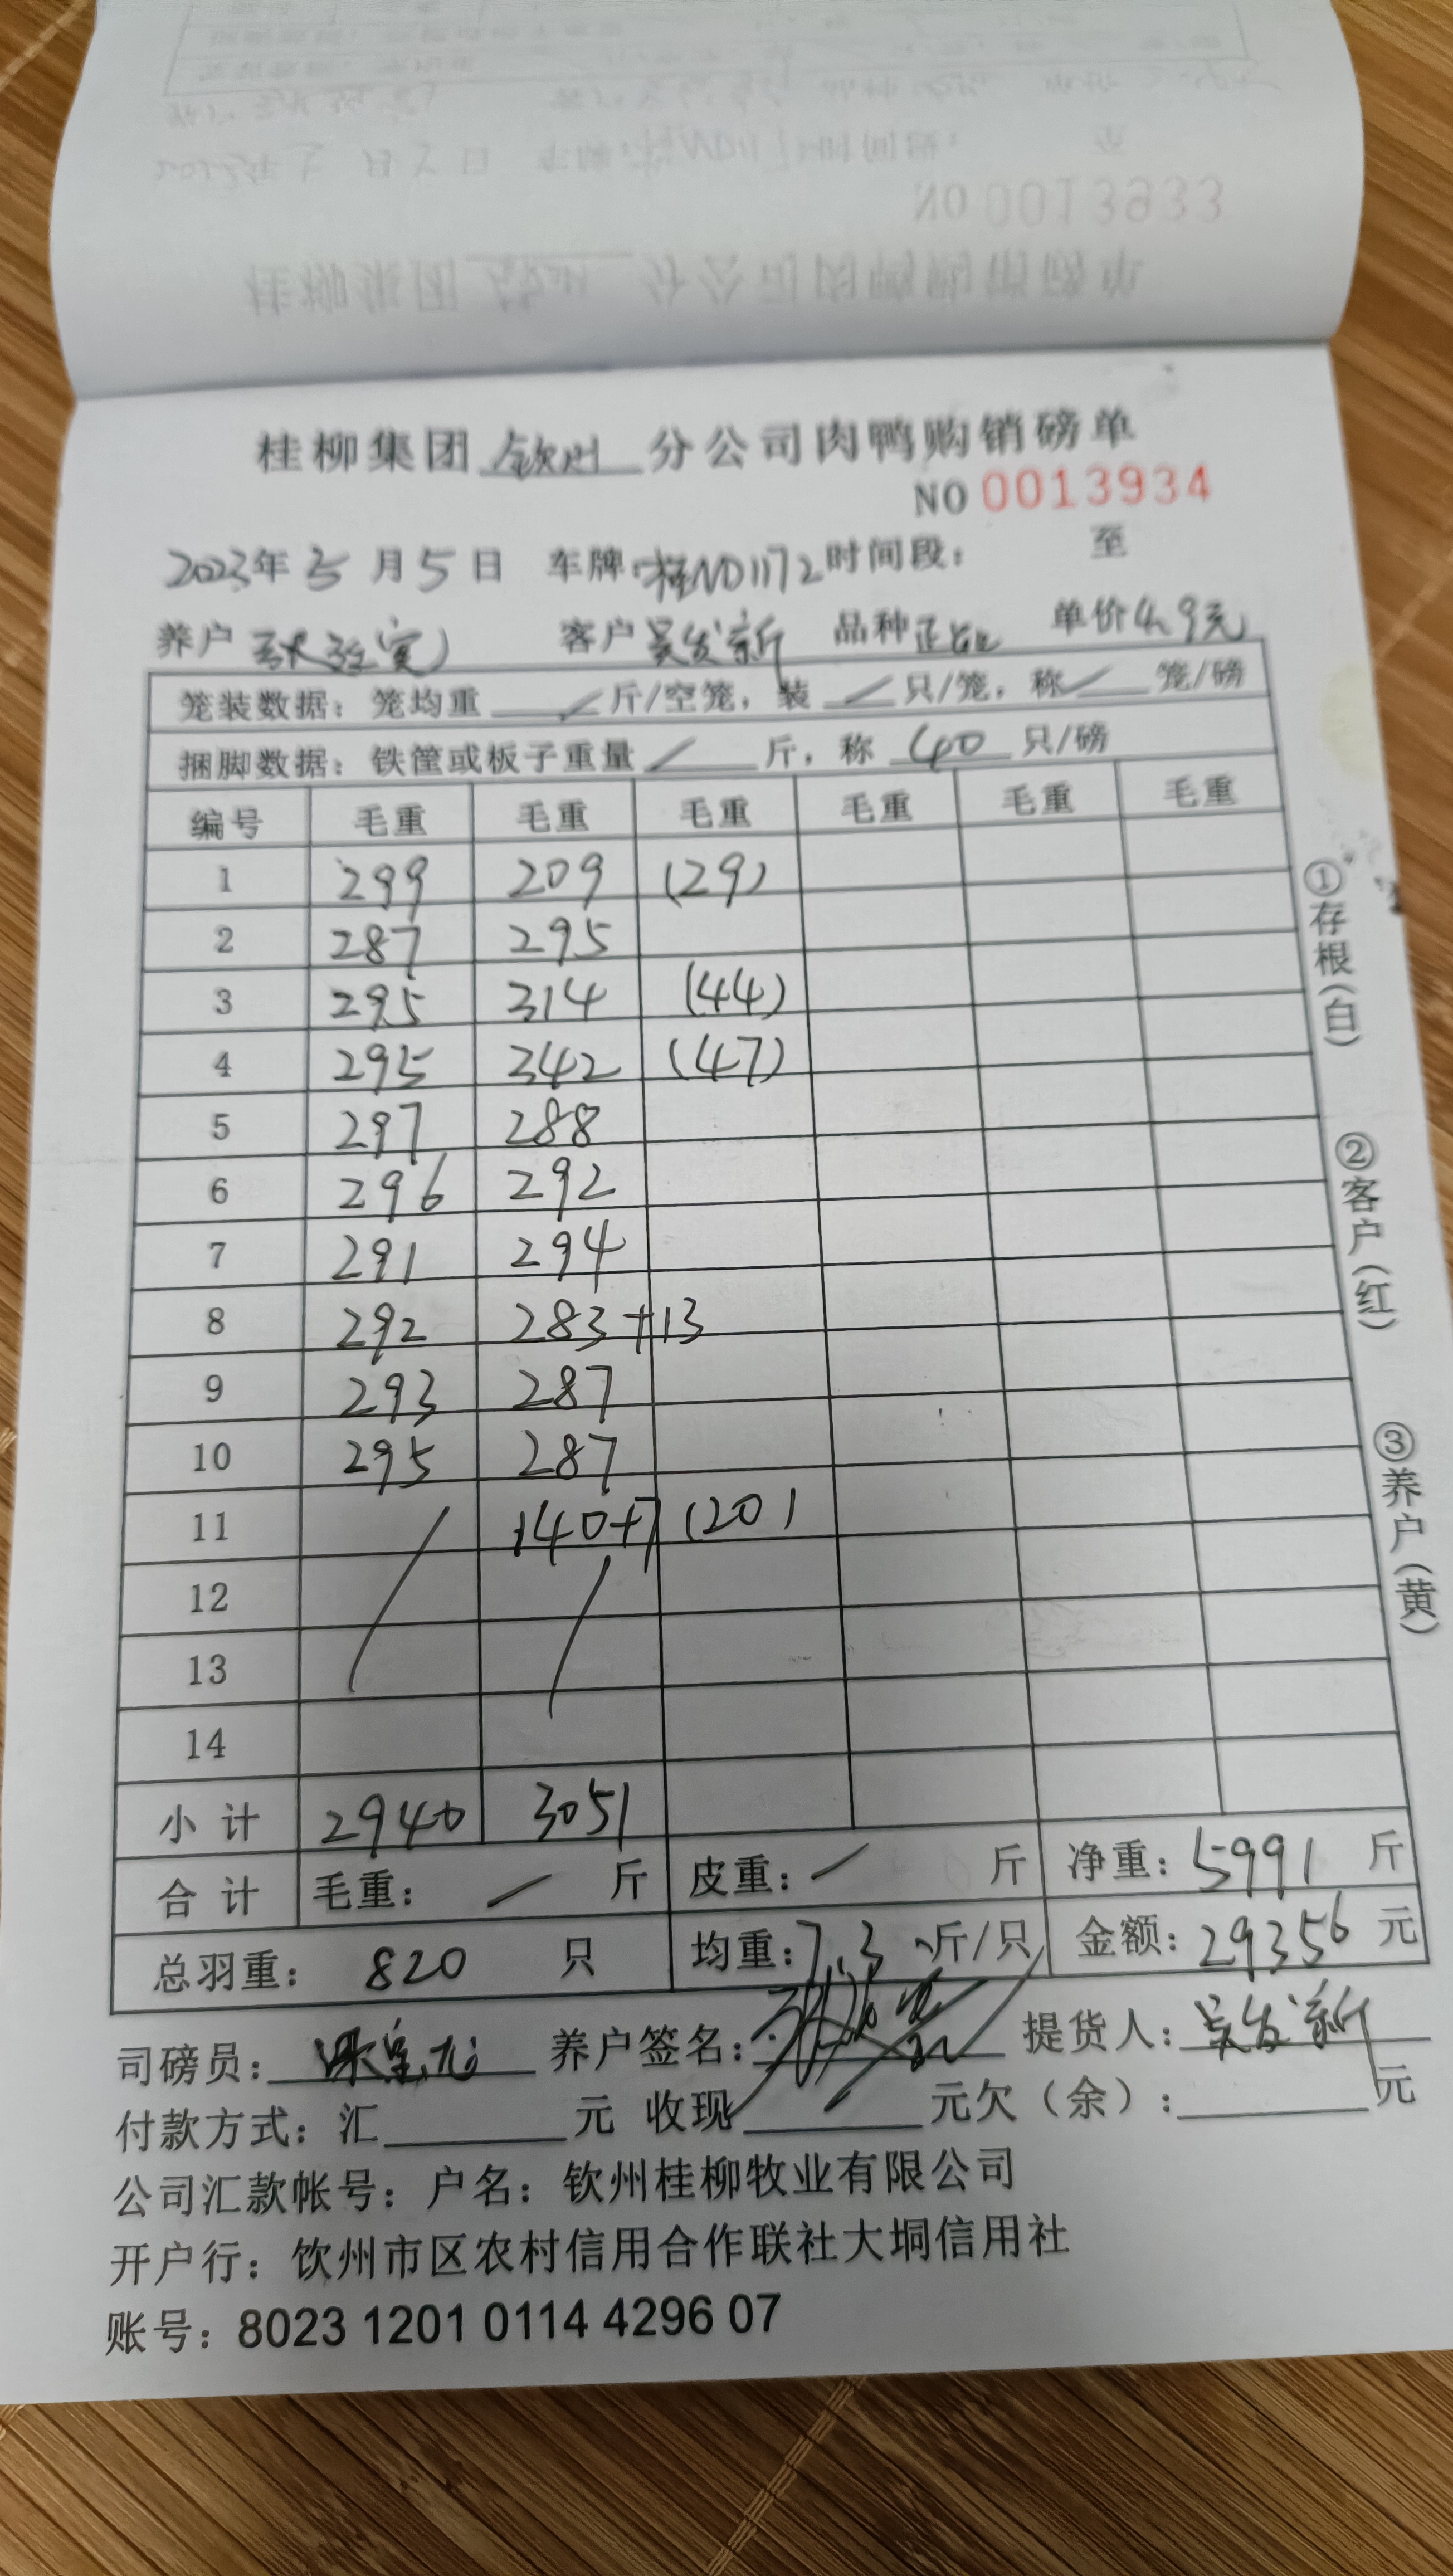 NO 0013933
桂柳集团 钦州 分公司肉鸭购销磅单
NO 0013934
2023年3月5日 车牌:桂ND1172 时间段: 至
养户 客户 吴发新 品种 正 单价4.9元
笼装数据: 笼均重 / 斤/空笼, 装 / 只/笼, 称 / 笼/磅
捆脚数据: 铁筐或板子重量 / 斤, 称 40 只/磅
编号 毛重 毛重 毛重 毛重 毛重 毛重
1 299 209 (29)
2 287 295
3 295 314 (44)
4 295 342 (47)
5 297 288
6 296 292
7 291 294
8 292 283+13
9 293 287
10 295 287
11 140+7 (20)
12
13
14
小计 2940 3051
合计 毛重: / 斤 皮重: / 斤 净重: 5991 斤
总羽重: 820 只 均重: 7.3 斤/只 金额: 29356 元
司磅员: 养户签名: 提货人: 吴发新
付款方式: 汇 元 收现 元欠(余): 元
公司汇款帐号: 户名: 钦州桂柳牧业有限公司
开户行: 饮州市区农村信用合作联社大垌信用社
账号: 8023 1201 0114 4296 07
①存根(白)
②客户(红)
③养户(黄)